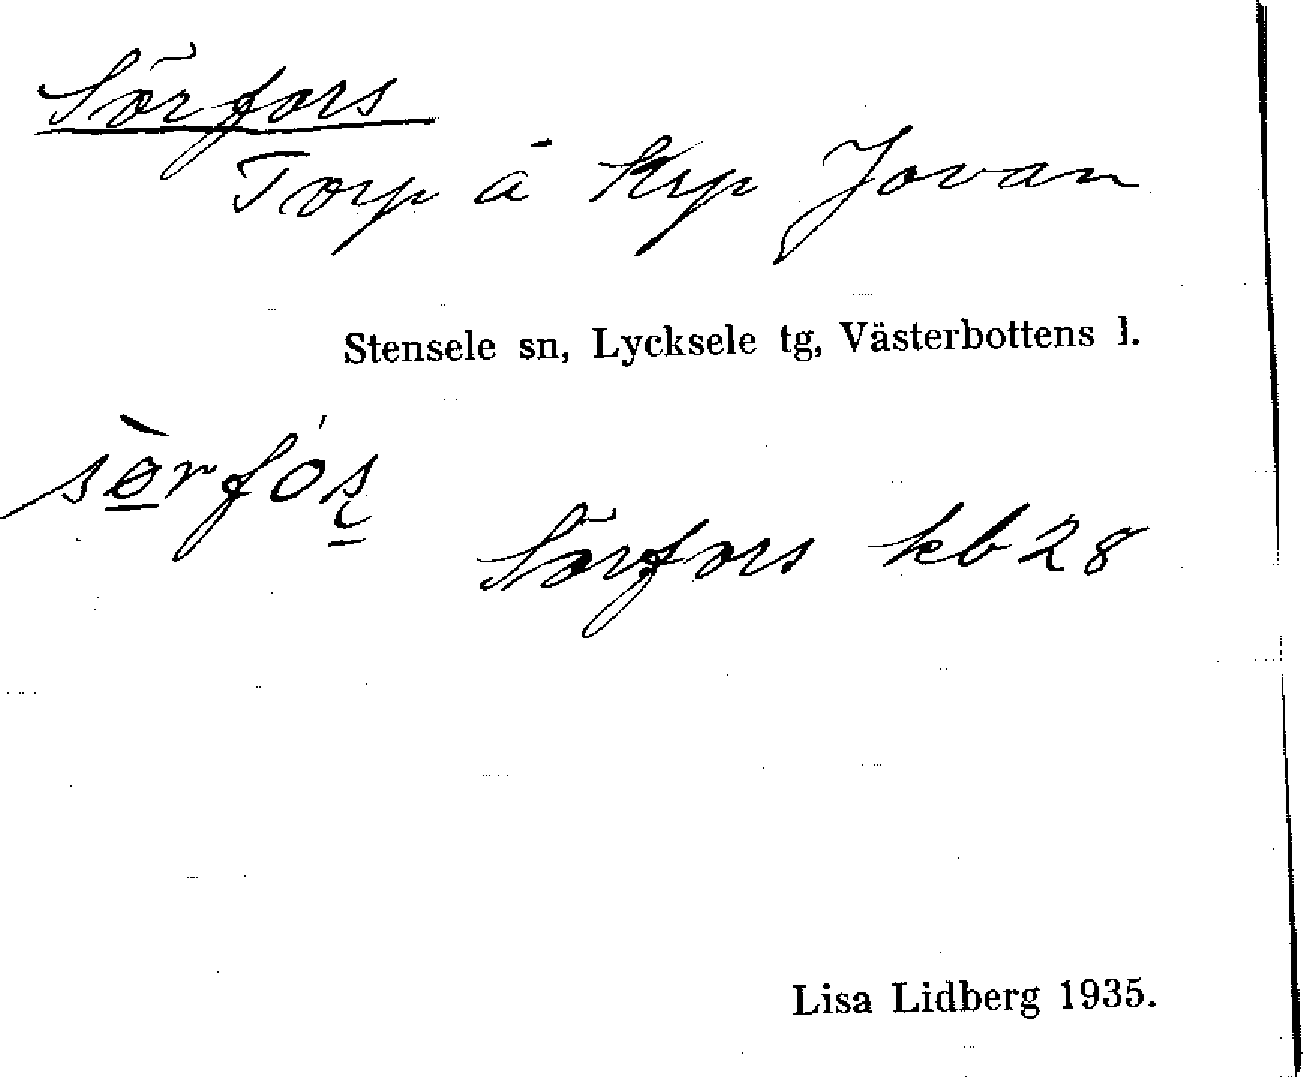 Sörfors
Torp å Krp Jovan
Stensele sn, Lycksele tg, Västerbottens l.
sèrfó̱s̱
Sörfors kb 28
Lisa Lidberg 1935.